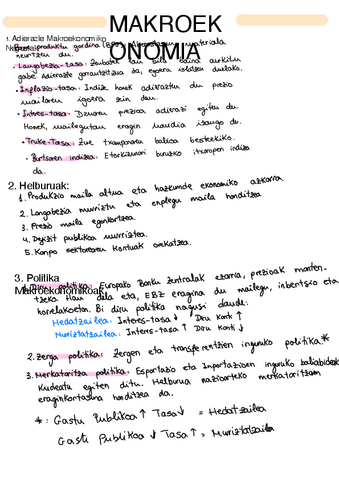 MAKROEK
ONOMIA
1. Adierazle Makroekonomiko
Barne produktu gordina (BPG). Aberastasun materiala
neurtzen du.
• Langabezia-tasa: Zenbatek lan bila baina aurkitu
gabe. Adierazle garrantzitsua da, egoera islatzen duelako.
• Inflazio-tasa: Indize honek adierazten du prezio
mailaren igoera zein den.
• Interes-tasa: Diruaren prezioa adierazi egiten du.
Honek mailegutan eragin handia izango du.
• Truke-Tasa: Zure txanponaren balioa besterekiko.
• Burtsaren indizea: Etorkizunari buruzko itxaropen indizea
da.
2. Helburuak:
1. Produkzio maila altua eta hazkunde ekonomiko azkarra
2. Langabezia murriztu eta enplegu maila handitzea
3. Prezio maila egonkortzea.
4. Defizit publikoa murriztea.
5. Kanpo sektorearen kontuak orekatzea.
3. Politika
Makroekonomikoak
1. Diru politika: Europako Banku Zentralak ezarria, prezioak manten-
tzeko. Hau dela eta, EBZ eragina du mailegu, inbertsio eta
horrelakoetan. Bi diru politika nagusi daude:
Hedatzailea: Interes-tasa ↓ Diru Kont ↑
Murriztatzailea: Interes-tasa ↑ Diru Konti ↓
2. Zerga politika: Zergen eta transferentzien inguruko politika*
3. Merkataritza politika: Esportazio eta Inportazioen inguruko baliabideak
Kudeatu egiten ditu. Helburua nazioarteko merkataritzan
eraginkortasuna handitzea da.
*: Gastu Publikoa ↑ Tasa ↓ = Hedatzailea
Gastu Publikoa ↓ Tasa ↑ = Murriztatzailea